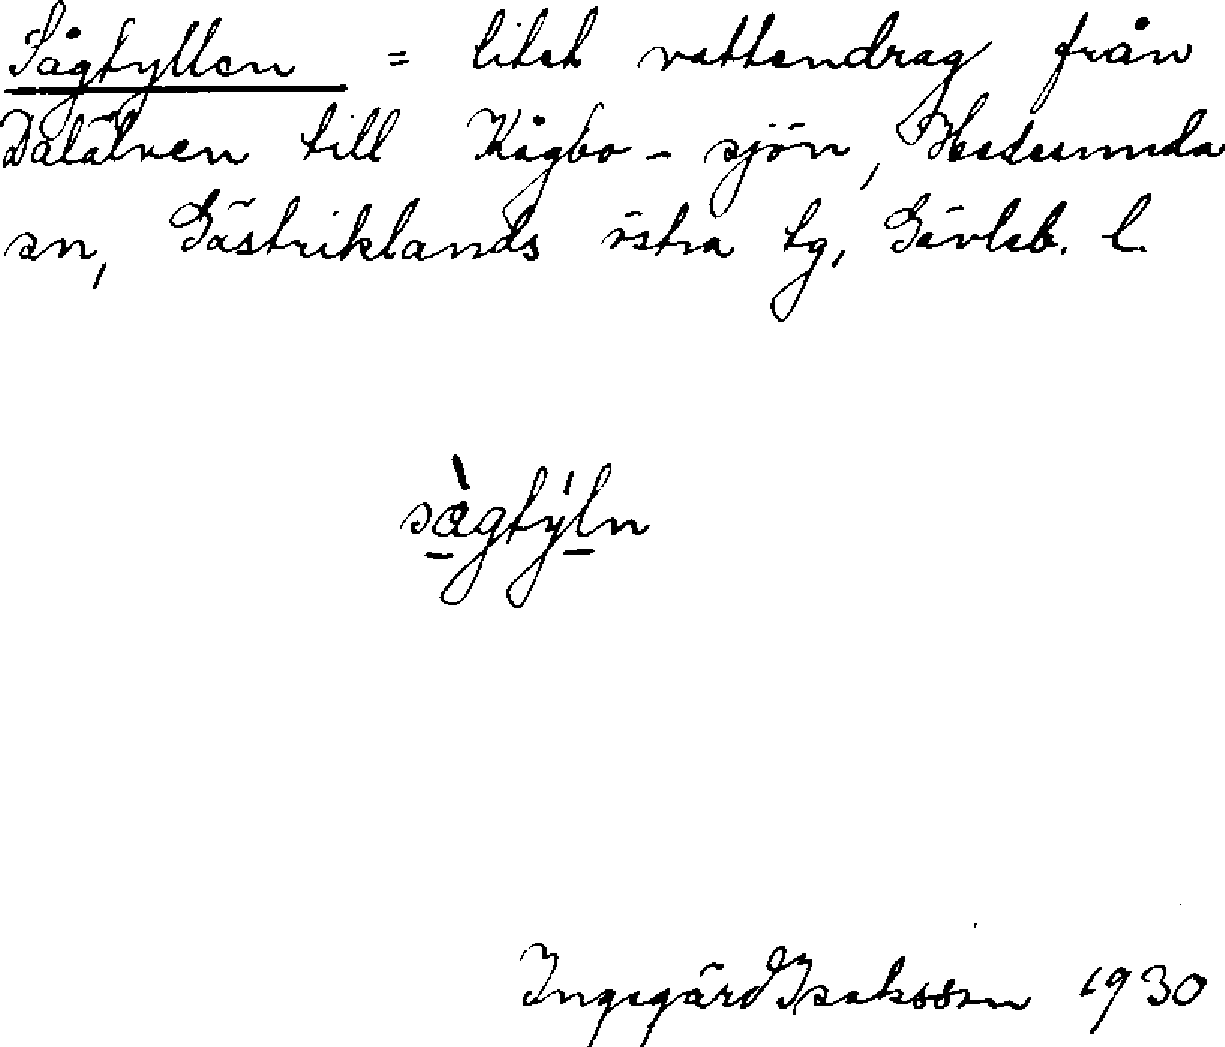 Sågtyllen = litet vattendrag från
Dalälven till Kågbo-sjön, Hedesunda
sn, Gästriklands östra tg, Gävleb. l.
sàgtýln
Ingegärd Isaksson 1930